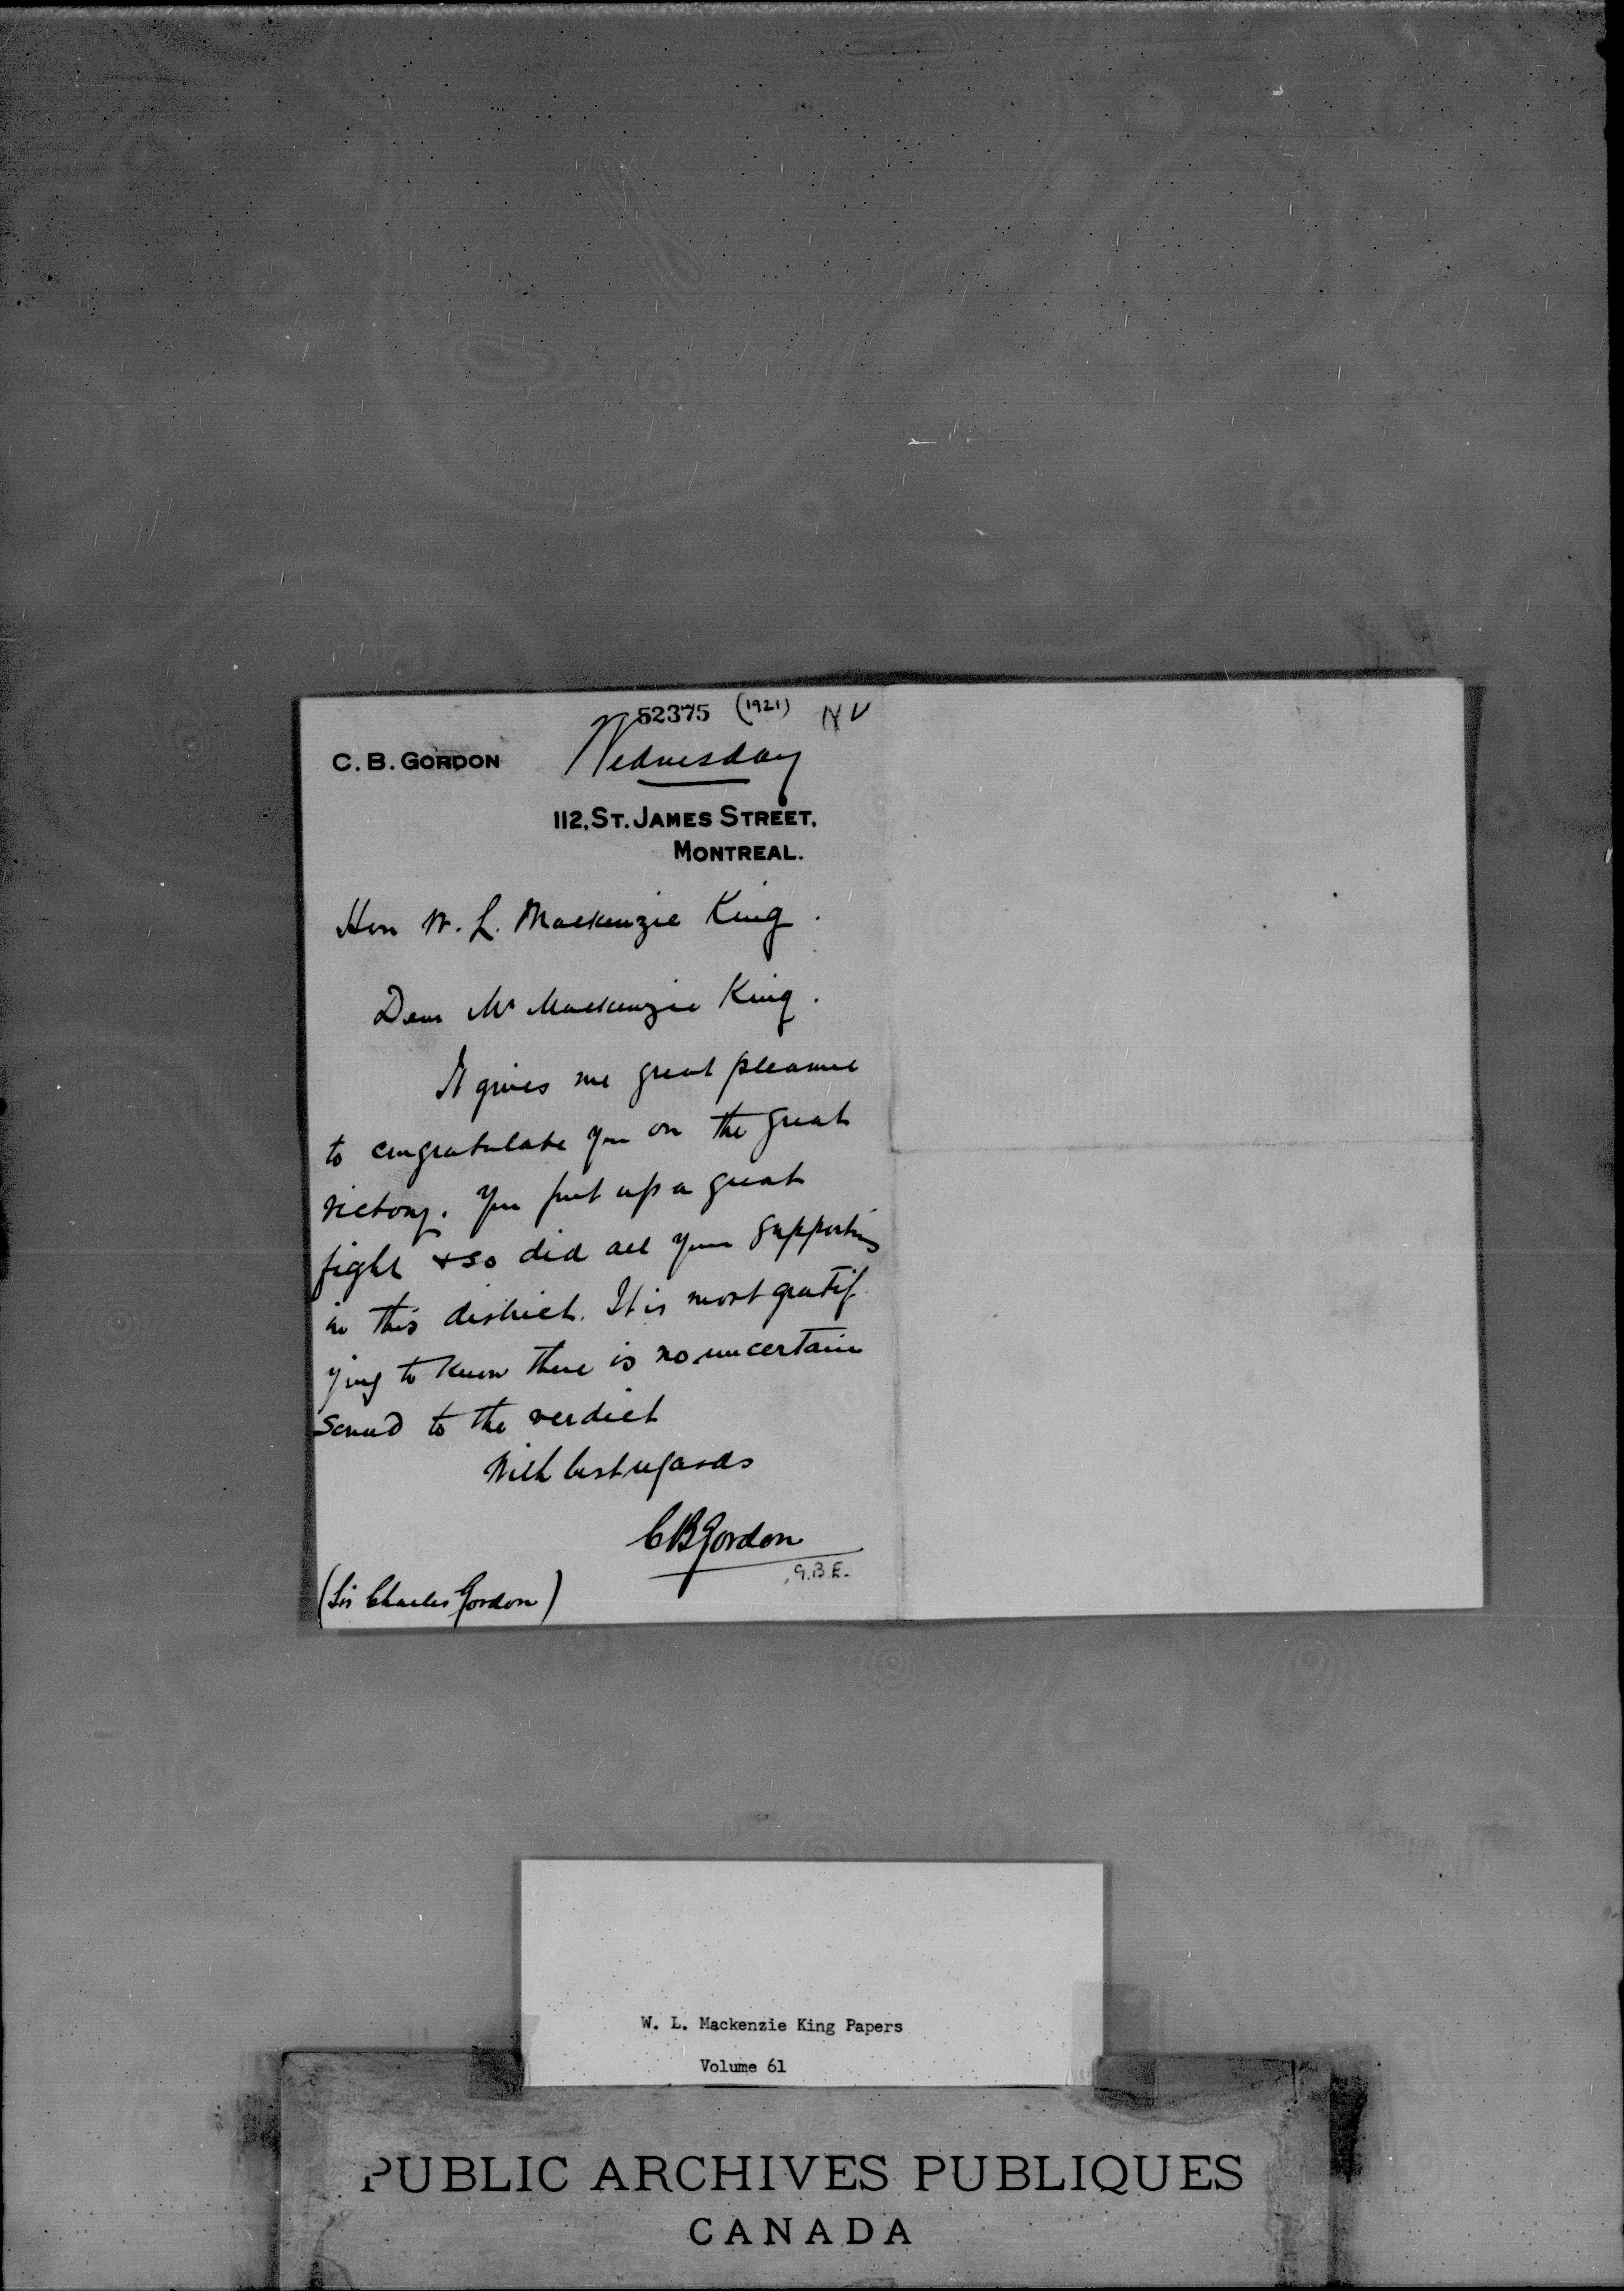 52375 (1921)
C. B. GORDON Wednesday
112, ST. JAMES STREET,
MONTREAL.
Hon W. L. Mackenzie King.
Dear Mr Mackenzie King.
It gives me great pleasure
to congratulate you on the great
victory. You put up a great
fight & so did all your supporters
in this district. It is most gratif
ying to know there is no uncertain
sound to the verdict
With best regards
CBGordon
G.B.E.
(Sir Charles Gordon)
W. L. Mackenzie King Papers
Volume 61
PUBLIC ARCHIVES PUBLIQUES
CANADA